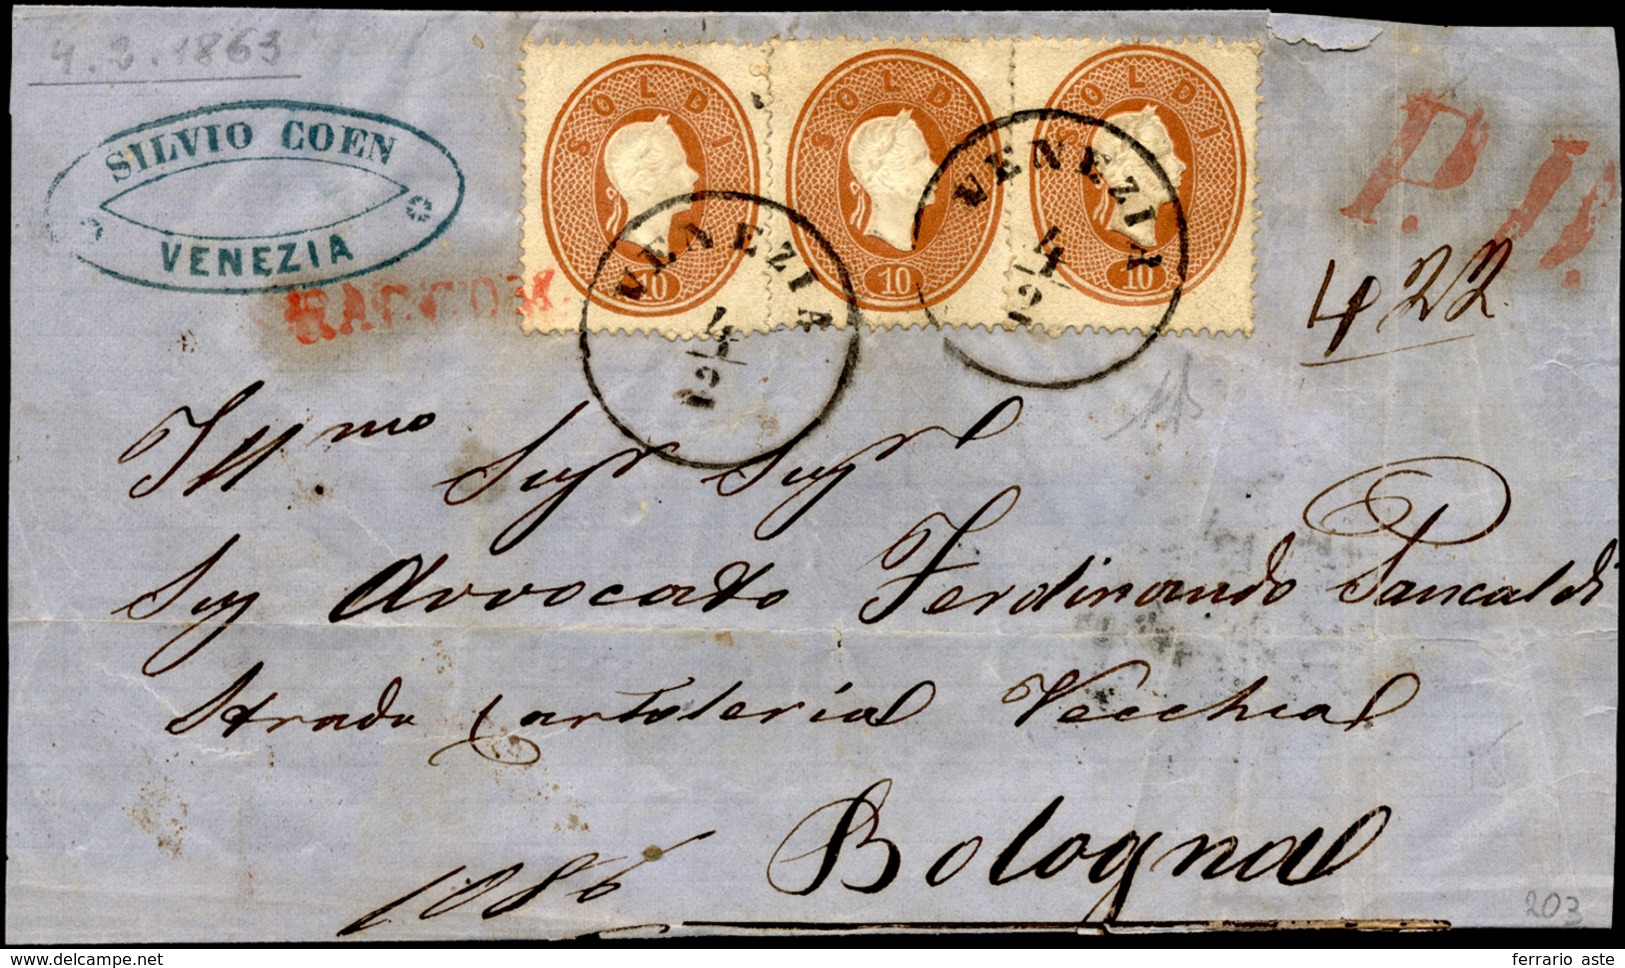 4.2.1863
SILVIO COEN
VENEZIA
RACCOM.
SOLDI
10
SOLDI
10
SOLDI
10
VENEZIA
4/12
VENEZIA
4/12
P.D.
422
Illmo Sigr Sigr
Sig Avvocato Ferdinando Pancaldi
Strada Cartoleria Vecchia
Bologna
1086
15
203
delcampe.net
ferrario aste